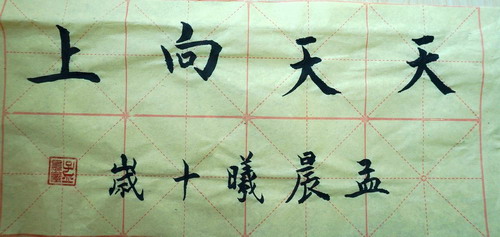 天天向上
孟晨曦十岁